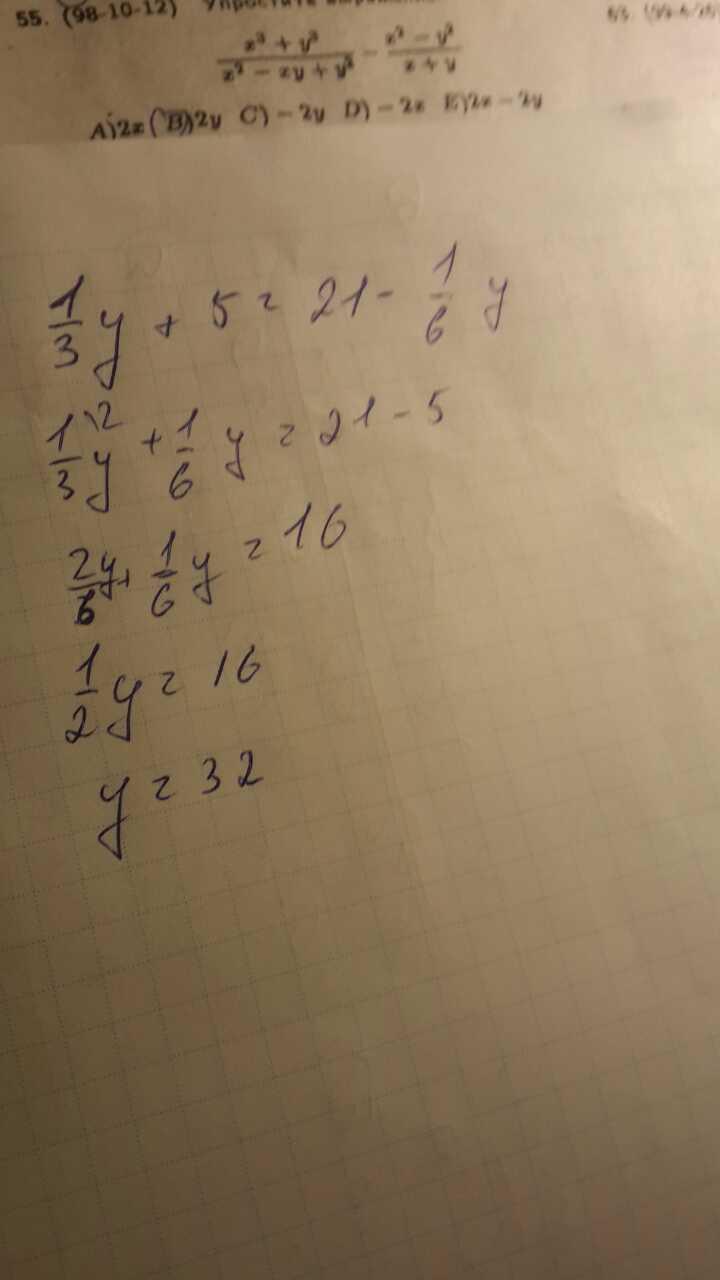 55. (98-10-12) Упростите
\frac{x^3 + y^3}{x^2 - xy + y^2} - \frac{x^2 - y^2}{x + y}
A) 2x B) 2y C) - 2y D) - 2x E) 2x - 2y
\frac{1}{3}y + 5 = 21 - \frac{1}{6}y
\frac{1}{3}^{\2}y + \frac{1}{6}y = 21 - 5
\frac{2}{6}y + \frac{1}{6}y = 16
\frac{1}{2}y = 16
y = 32